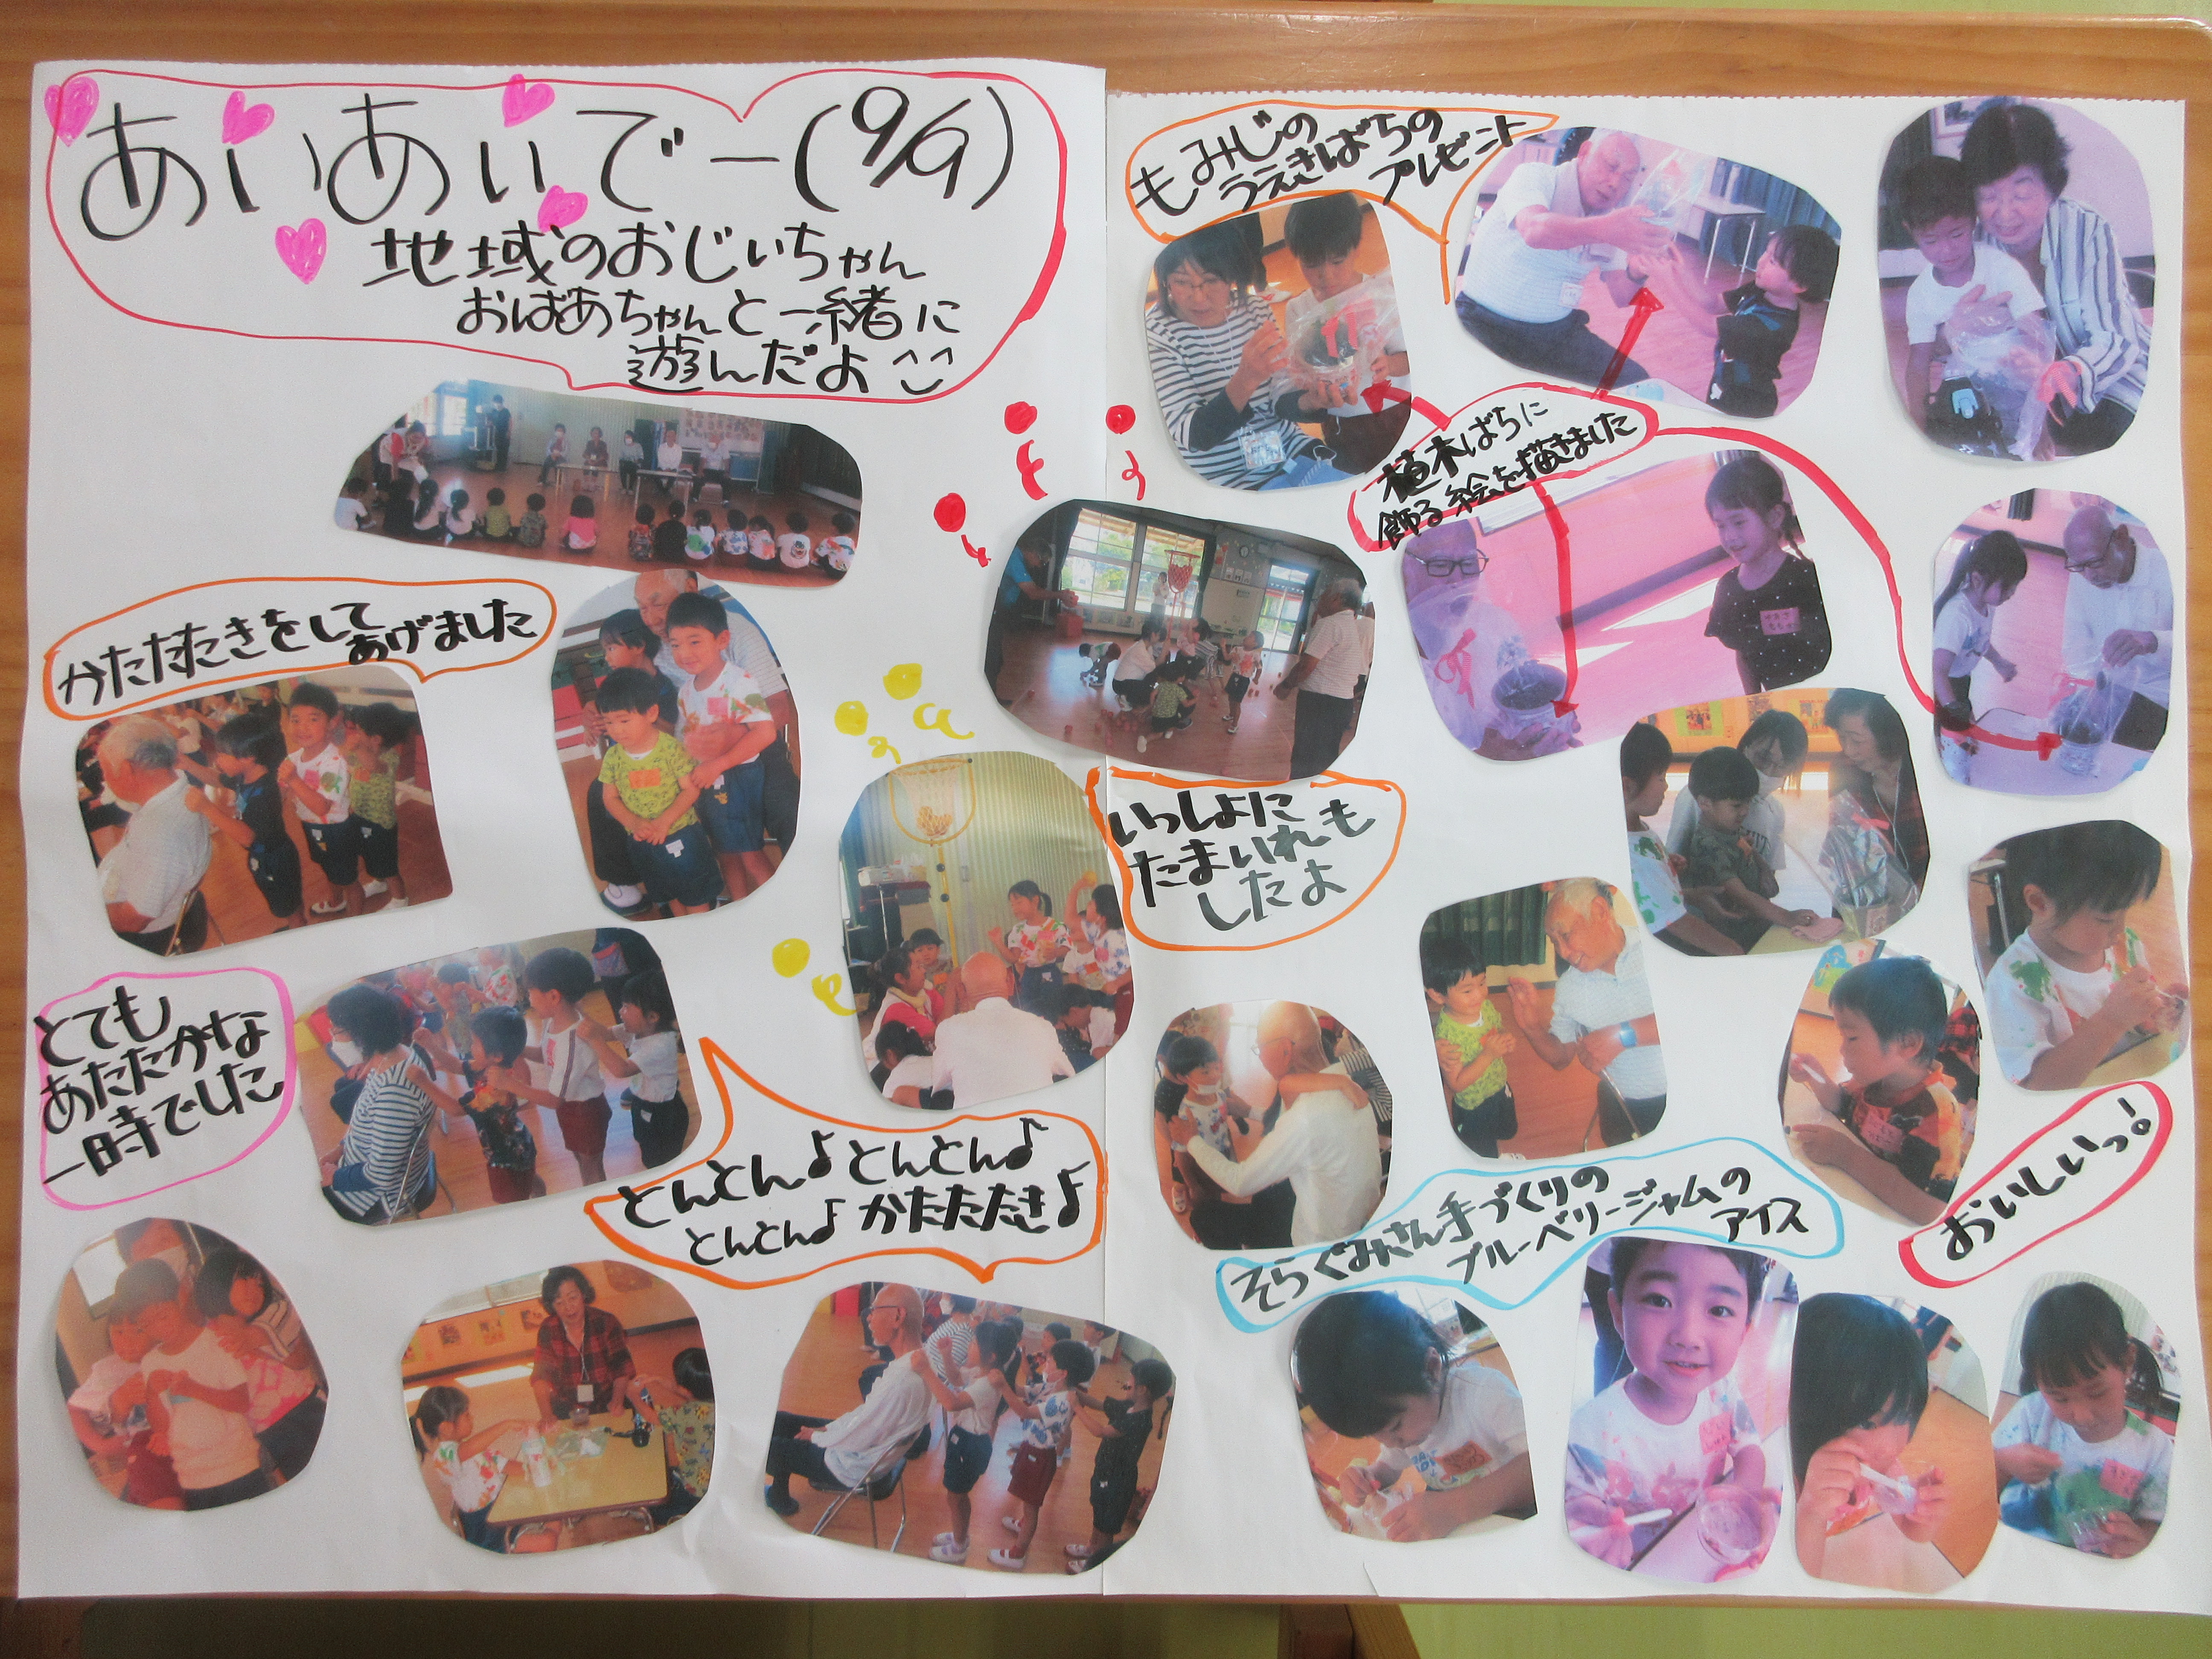 あいあいでー(9/9)
地域のおじいちゃん
おばあちゃんと一緒に
遊んだよ
かたたたきをして
あげました
とても
あたたかな
一時でした
とんとん♪とんとん♪
とんとん♪かたたたき♪
いっしょに
たまいれも
したよ
もみじの
うえきばちの
プレゼント
植木ばちに
飾る絵を描きました
そらぐみさん手づくりの
ブルーベリージャムの
アイス
おいしいっ!